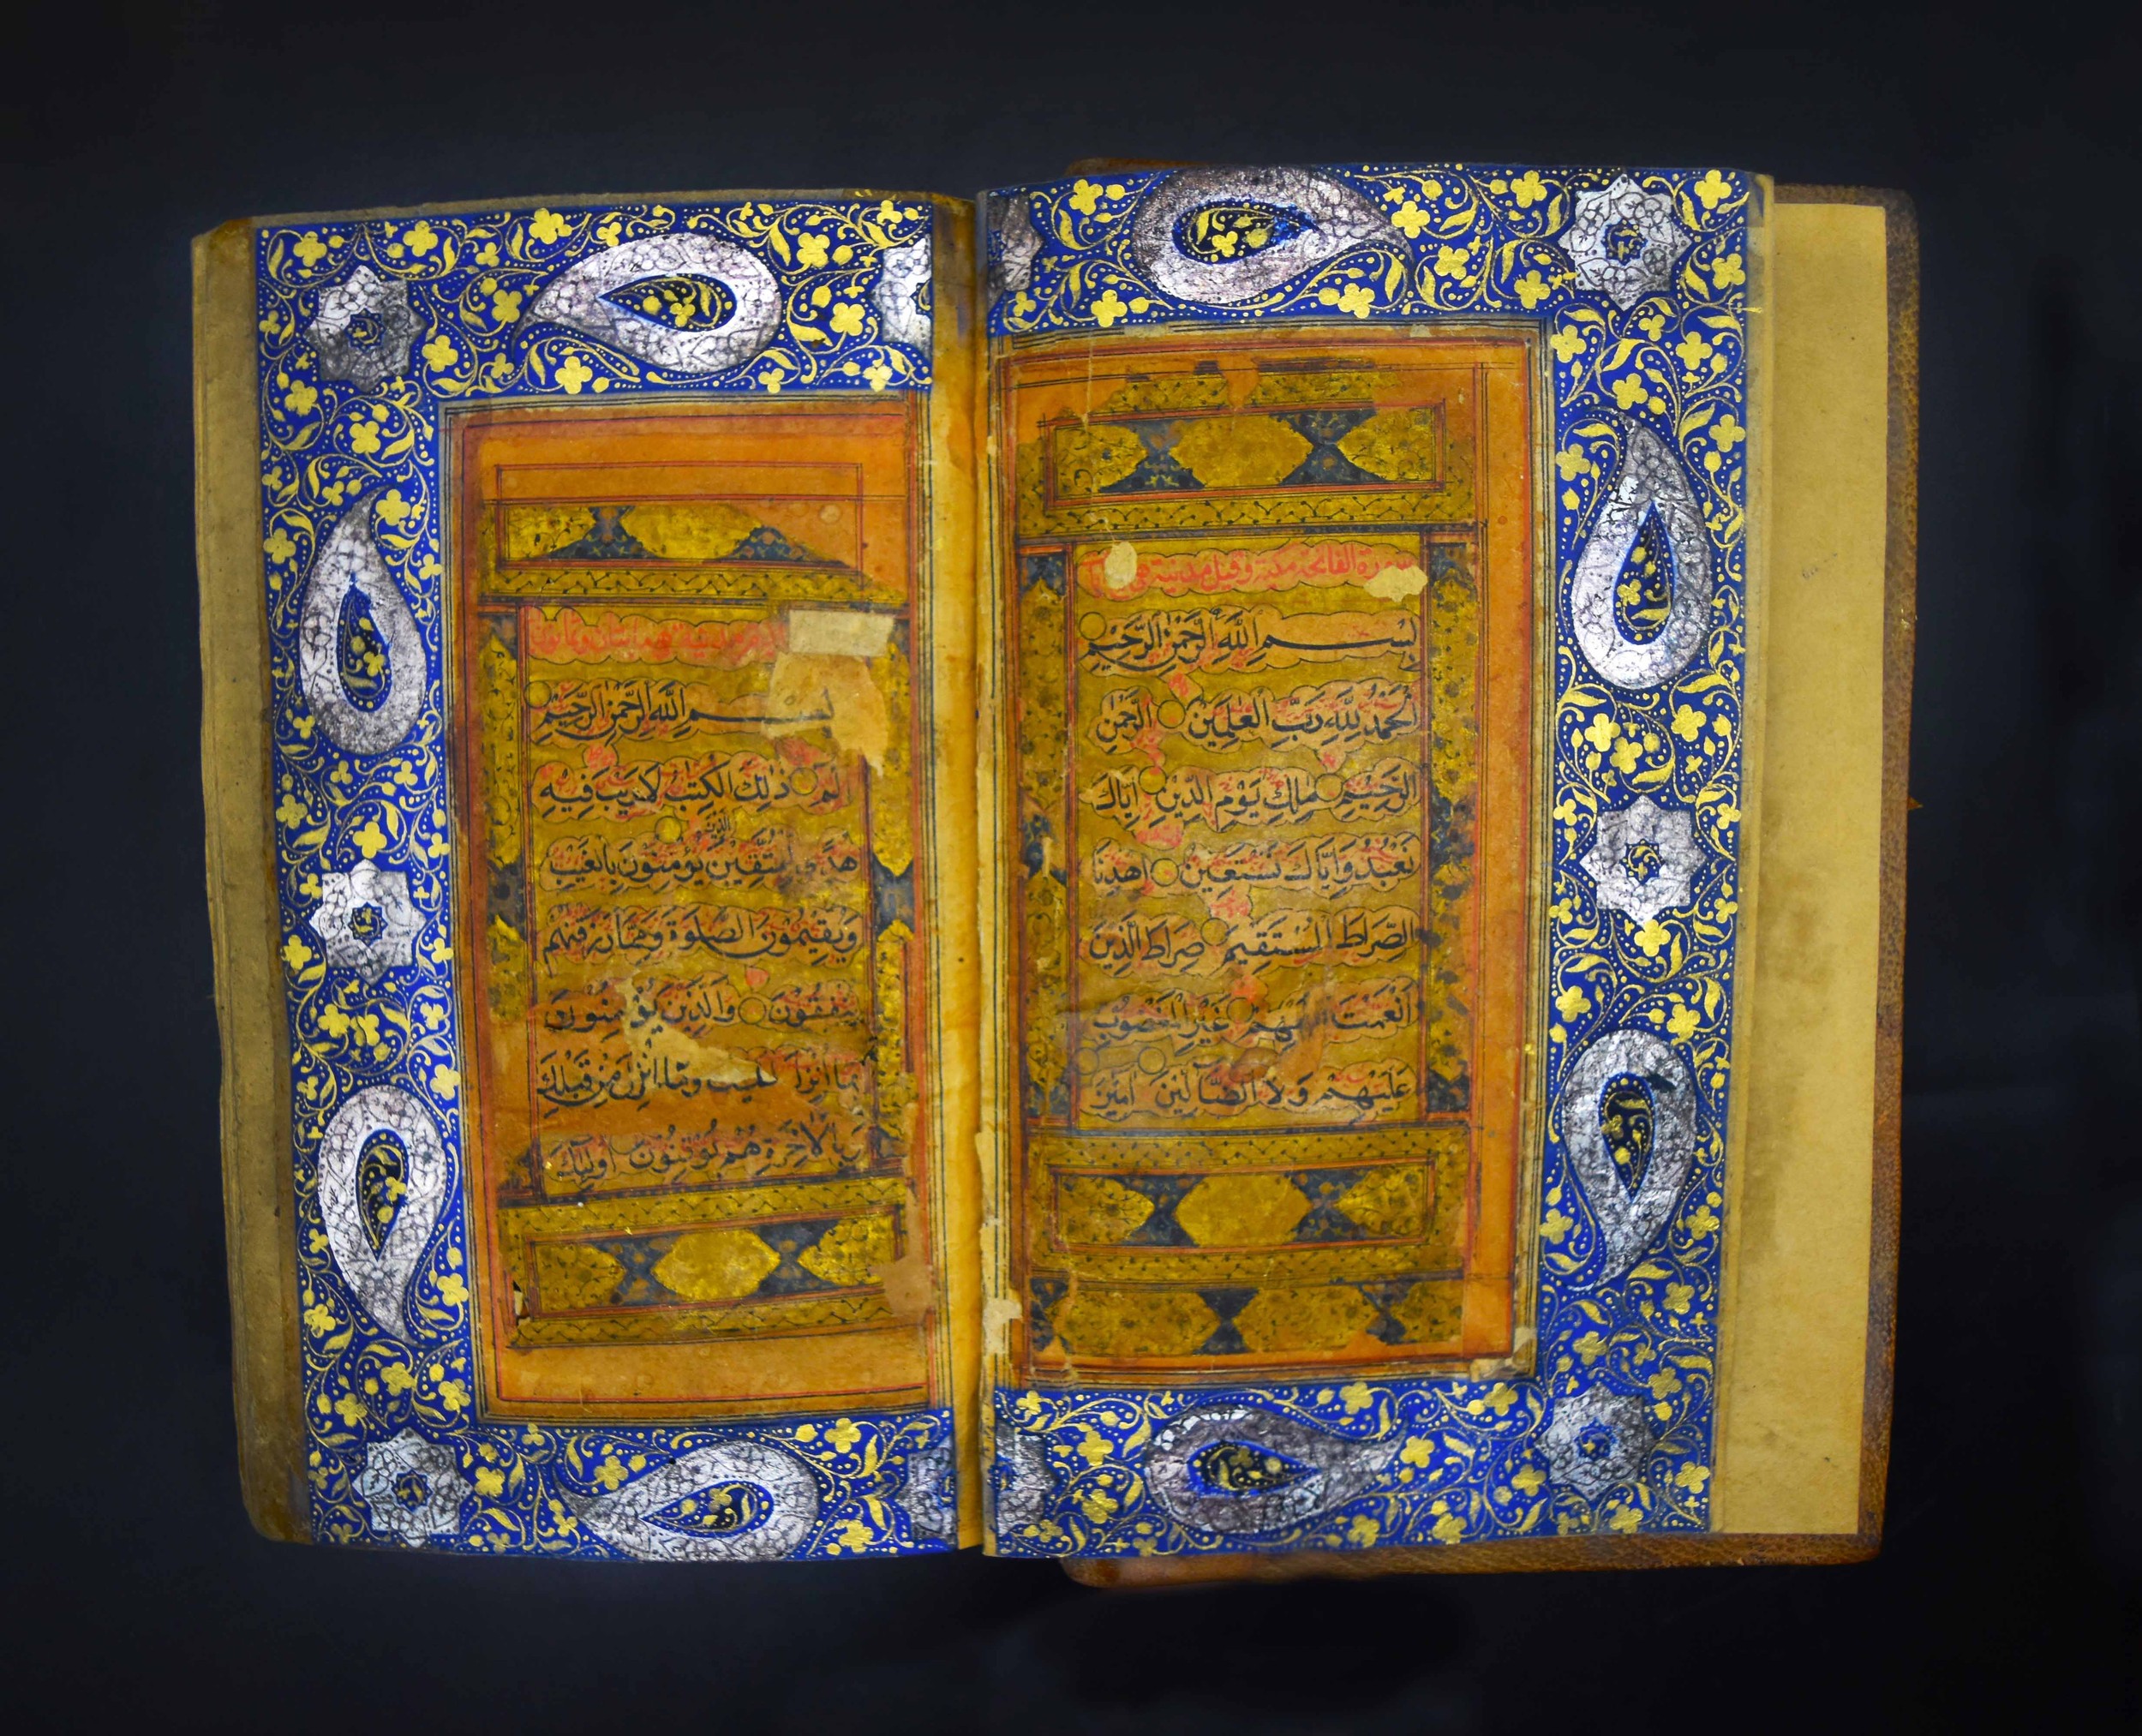 سورة الفاتحة مكية وقيل مدنية
بِسْمِ اللهِ الرَّحْمٰنِ الرَّحِيْمِ
اَلْحَمْدُ لِلّٰهِ رَبِّ الْعٰلَمِيْنَ الرَّحْمٰنِ
الرَّحِيْمِ مٰلِكِ يَوْمِ الدِّيْنِ اِيَّاكَ
نَعْبُدُ وَاِيَّاكَ نَسْتَعِيْنُ اِهْدِنَا
الصِّرَاطَ الْمُسْتَقِيْمَ صِرَاطَ الَّذِيْنَ
اَنْعَمْتَ غَيْرِ الْمَغْضُوْبِ
عَلَيْهِمْ وَلَا الضَّآلِّيْنَ اٰمِيْنَ
بِسْمِ اللهِ الرَّحْمٰنِ الرَّحِيْمِ
الٓمّٓ ذٰلِكَ الْكِتٰبُ لَا رَيْبَ فِيْهِ
هُدًى لِّلْمُتَّقِيْنَ الَّذِيْنَ يُؤْمِنُوْنَ بِالْغَيْبِ
وَيُقِيْمُوْنَ الصَّلٰوةَ وَمِمَّا رَزَقْنٰهُمْ
يُنْفِقُوْنَ وَالَّذِيْنَ يُؤْمِنُوْنَ
بِمَا اُنْزِلَ اِلَيْكَ وَمَا اُنْزِلَ مِنْ قَبْلِكَ
وَبِالْاٰخِرَةِ هُمْ يُوْقِنُوْنَ اُولٰٓئِكَ